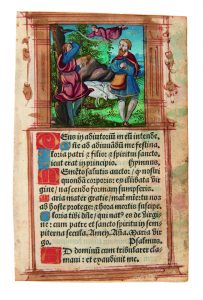 Deus in adiutorium meū intende.
ſte ad adiuuādū me feſtina
loria patri ⁊ filio: ⁊ ſpiritui ſancto
icut erat in principio. Hymnus.
Memēto ſalutis auctor: ꝙ noſtri
quondā corporis: ex illibata virgine
naſcendo formam ſumpſeris.
aria mater gratie/ mater
ab hoſte protege: ⁊ hora mortis ſuſcipe.
loria tibi dñe/ qui natꝰ es de virgine:
cum patre et ſancto ſpiritu
ſempiterna ſecula. Amen. Aña. Maria virgo.
Pſalmus.
AD dominū cum tribularer clamaui:
et exaudiuit me.